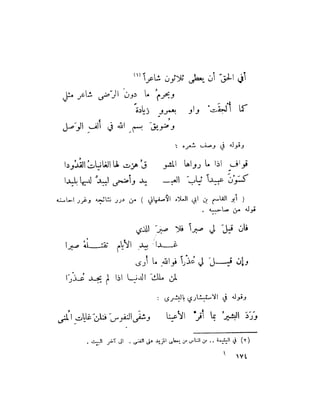 أفي الحقّ أن يعطى ثلاثون شاعراً (٢)
ويحرم ما دون الرضى شاعر مثلي
كما أُلحقت واو بعمرو زيادة
وضويق بسم الله في ألف الوصل
وقوله في وصف شعره :
قواف اذا ما رواها المشو ق هزت لها الغانيات القدودا
كسون عبيداً ثياب العبيـ ـد وأضحى لبيد لديها بليدا
( أبو القاسم بن ابي العلاء الأصفهاني ) من درر نتائجه وغرر احاسنه
قوله من صاحبيه .
فان قيل لي صبراً فلا صبر للذي
غدا بيد الأيام تقتله صبرا
وإن قيل لي عذراً فوالله ما أرى
لمن ملك الدنيا اذا لم يجد عذرا
وقوله في الاستبشار بالبشرى :
ورد البشير بما أقر الأعينا وشفى النفوس فنلن غايات المنى
(٢) في اليتيمة .. من الناس من يعطى المزيد على الغنى . الى آخر البيت .
١٧٤